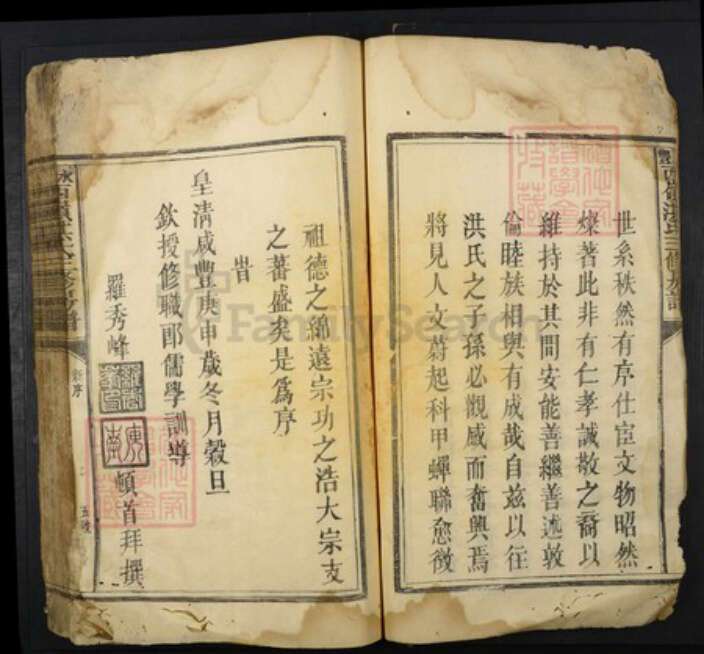 世系秩然有序仕宦文物昭然
燦著此非有仁孝誠敬之裔以
維持於其間安能善繼善述敦
倫睦族相與有成哉自玆以往
洪氏之子孫必觀感而奮興焉
將見人文蔚起科甲蟬聯愈徴
祖德之綿遠宗功之浩大宗支
之蕃盛矣是爲序
旹
皇清咸豐庚申歲冬月穀旦
欽授修職郎儒學訓導
羅秀峰
頓首拜撰
新序
FamilySearch